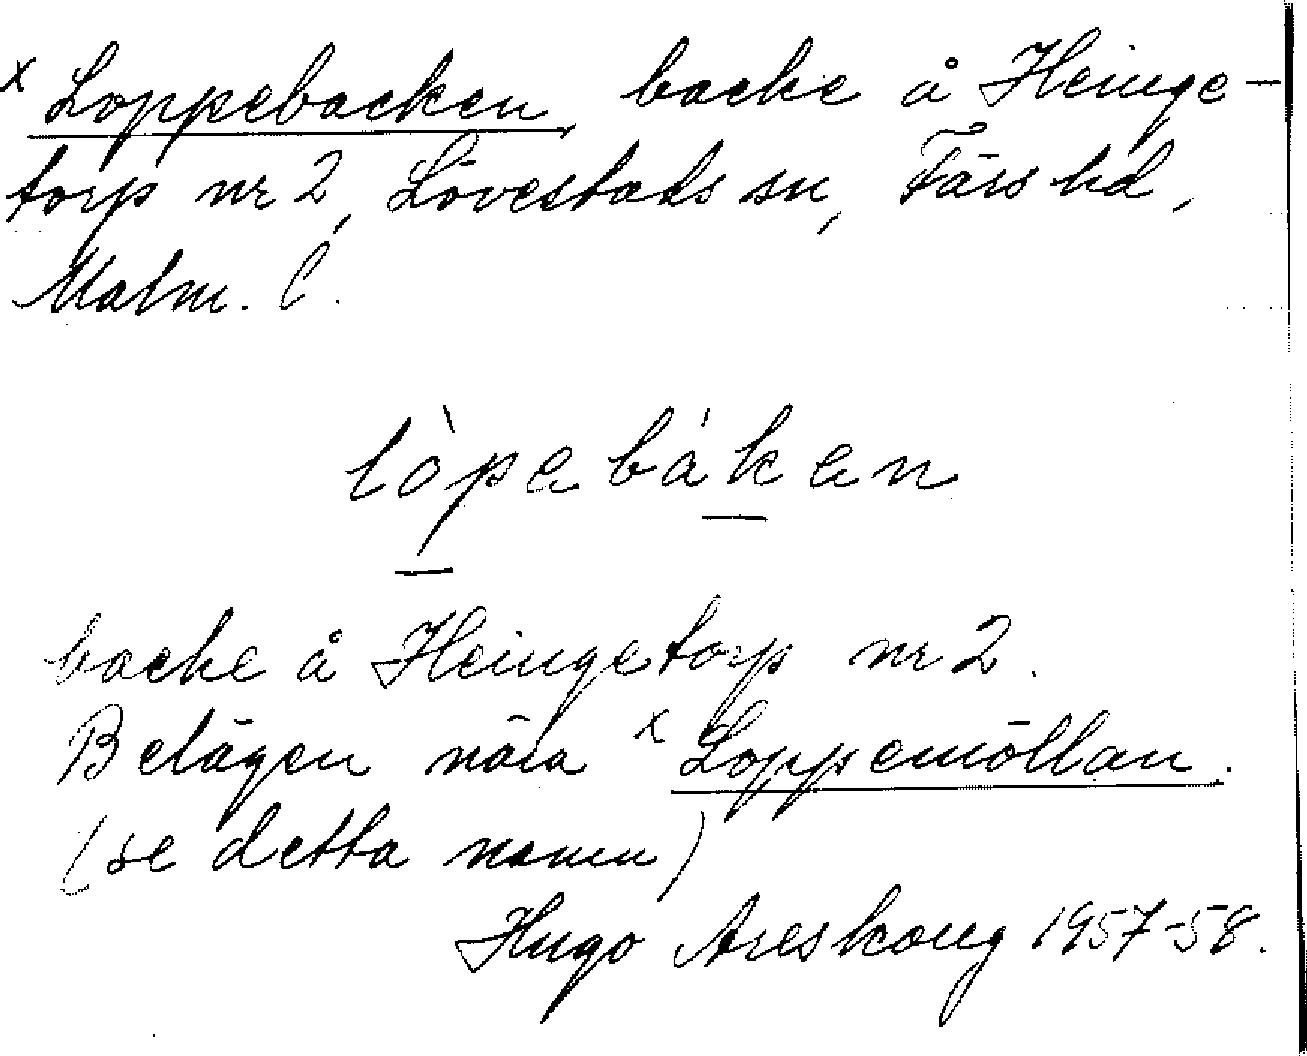 x Loppebacken, backe å Heinge-
torp nr 2, Lövestads sn, Färs hd,
Malm. l.
lòpebáken
backe å Heingetorp nr 2.
Belägen nära x Loppemöllan.
(se detta namn)
Hugo Areskoug 1957-58.